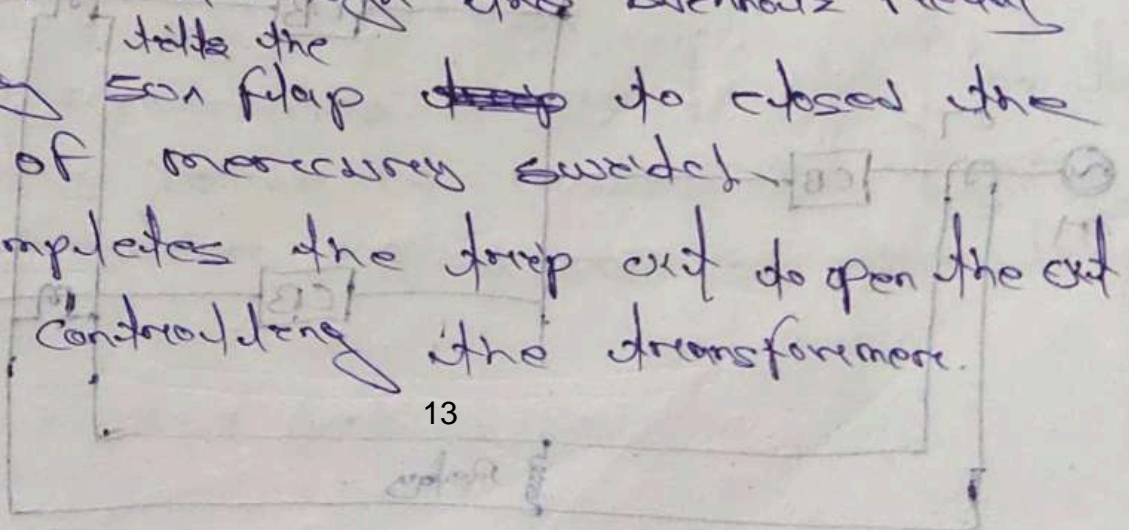 Buchholz Relay
tilts the
son flap to closed the
of mercury switch
mpletes the trip ckt to open the ckt
Controulling the transformer.
13